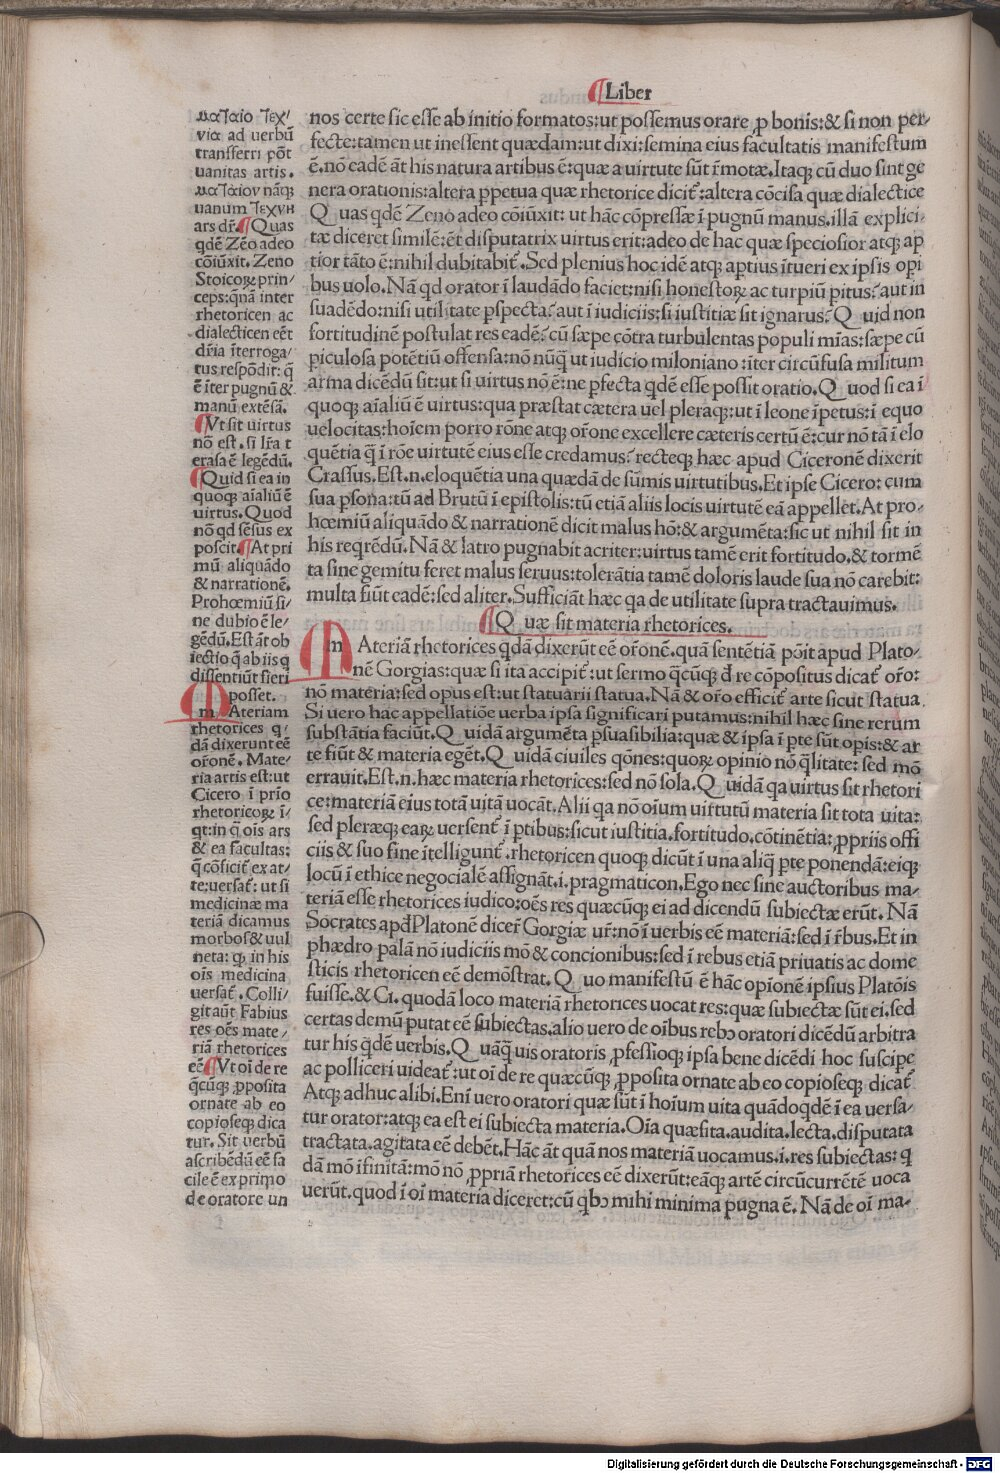 ¶Liber
ματαιο τεχ/
νια ad uerbū
transferri põt
uanitas artis.
ματαιον nāq;
uanum τεχνη
ars dr̄.¶Quas
qdē Zēo adeo
cōiūxit. Zeno
Stoicoꝝ prin/
ceps:qnā inter
rhetoricen ac
dialecticen eēt
dr̄ia īterroga/
tus respōdit: q̄
ē īter pugnū &
manū extēsā.
¶Vt sit uirtus
nō est. si lr̄a t
erasa ē legēdū.
¶Quid si ea in
quoq; aīaliū ē
uirtus. Quod
nō qd sēsus ex
poscit.¶At pri
mū aliquādo
& narrationē.
Prohœmiū si/
ne dubio ē le/
gēdū. Est āt ob
iectio q̄ ab iis q
dissentiūt fieri
posset.
mAteriam
rhetorices q/
dā dixerunt eē
or̄onē. Mate/
ria artis est:ut
Cicero ī prīo
rhetoricoꝝ ī/
qt:in q̄ oīs ars
& ea facultas:
q̄ cōficit̄ ex ar/
te:uersat̄: ut si
medicinæ ma
teriā dicamus
morbos & uul
nera: qꝫ in his
oīs medicina
uersat̄. Colli/
git aūt Fabius
res oēs mate/
riā rhetorices
eē¶Vt oī de re
qcūq; ꝓposita
ornate ab eo
copioseq; dica
tur. Sit uerbū
ascribēdā eē fa
cile ē ex primo
de oratore un
nos certe sic esse ab initio formatos:ut possemus orare ꝓ bonis:& si non per/
fecte:tamen ut inessent quædam:ut dixi:semina eius facultatis manifestum
ē.nō eadē āt his natura artibus ē:quæ a uirtute sūt r̄motæ.Itaq; cū duo sint ge
nera orationis:altera ꝑpetua quæ rhetorice dicit̄:altera cōcisa quæ dialectice
Quas qdē Zeno adeo cōiūxit: ut hāc cōpressæ ī pugnū manus.illā explici/
tæ diceret similē:ēt disputatrix uirtus erit:adeo de hac quæ speciosior atq; ap
tior tāto ē:nihil dubitabit̄.Sed plenius hoc idē atq; aptius ītueri ex ipsis opi
bus uolo.Nā qd orator ī laudādo faciet:nisi honestoꝝ ac turpiū ꝑitus? aut in
suadēdo:nisi utilitate ꝑspecta? aut ī iudiciis:si iustitiæ sit ignarus? Quid non
fortitudinē postulat res eadē? cū sæpe cōtra turbulentas populi mīas:sæpe cū
ꝑiculosa potētiū offensa:nō nūq̄ ut iudicio miloniano:īter circūfusa militum
arma dicēdū sit:ut si uirtus nō ē:ne ꝑfecta qdē esse possit oratio.Quod si ea ī
quoq; aīaliū ē uirtus:qua præstat cætera uel pleraq;:ut ī leone īpetus:ī equo
uelocitas:hoīem porro rōne atq; or̄one excellere cæteris certū ē:cur nō tā ī elo
quētia q̄ ī rōe uirtutē eius esse credamus? recteq; hæc apud Ciceronē dixerit
Crassus.Est.n.eloquētia una quædā de sūmis uirtutibus.Et ipse Cicero: cum
sua ꝑsona:tū ad Brutū ī epistolis:tū etiā aliis locis uirtutē eā appellet.At pro/
hœmiū aliquādo & narrationē dicit malus hō:& argumēta:sic ut nihil sit in
his reqrēdū.Nā & latro pugnabit acriter:uirtus tamē erit fortitudo.& tormē
ta sine gemitu feret malus seruus:tolerātia tamē doloris laude sua nō carebit:
multa fiūt eadē:sed aliter.Sufficiāt hæc qa de utilitate supra tractauimus.
¶Quæ sit materia rhetorices.
mAteriā rhetorices qdā dixerūt eē or̄onē.quā sentētiā pōit apud Plato/
nē Gorgias:quæ si ita accipit̄:ut sermo qcūq; d̄ re cōpositus dicat̄ or̄o:
nō materia:sed opus est:ut statuarii statua.Nā & or̄o efficit̄ arte sicut statua
Si uero hac appellatiōe uerba ipsa significari putamus:nihil hæc sine rerum
substātia faciūt.Quidā argumēta ꝑsuasibilia:quæ & ipsa ī ꝑte sūt opis:& ar
te fiūt & materia egēt.Quidā ciuiles qōnes:quoꝝ opinio nō qlitate: sed mō
errauit.Est.n.hæc materia rhetorices:sed nō sola.Quidā qa uirtus sit rhetori
ce:materiā eius totā uitā uocāt.Alii qa nō oīum uirtutū materia sit tota uita:
sed pleræq; earꝝ uersent̄ ī ꝑtibus:sicut iustitia.fortitudo.cōtinētia: ꝓpriis offi
ciis & suo fine ītelligunt̄.rhetoricen quoq; dicūt ī una aliq ꝑte ponendā:eiq;
locū ī ethice negocialē assignāt.i.pragmaticon.Ego nec sine auctoribus ma/
teriā esse rhetorices iudico:oēs res quæcūq; ei ad dicendū subiectæ erūt. Nā
Socrates apd Platonē dicer̄ Gorgiæ ur̄:nō ī uerbis eē materiā:sed ī r̄bus.Et in
phædro palā nō iudiciis mō & concionibus:sed ī rebus etiā priuatis ac dome
sticis rhetoricen eē demōstrat.Quo manifestū ē hāc opīonē ipsius Platōis
fuisse.& Ci.quodā loco materiā rhetorices uocat res:quæ subiectæ sūt ei.sed
certas demū putat eē subiectas.alio uero de oībus rebꝰ oratori dicēdū arbitra
tur his qdē uerbis.Quāq̄ uis oratoris ꝓfessioq; ipsa bene dicēdi hoc suscipe
ac polliceri uideat̄:ut oī de re quæcūq; ꝓposita ornate ab eo copioseq; dicat̄
Atq; adhuc alibi.Enī uero oratori quæ sūt ī hoīum uita quādoqdē ī ea uersa/
tur orator:atq; ea est ei subiecta materia.Oīa quæsita.audita.lecta.disputata
tractata.agitata eē debēt.Hāc āt quā nos materiā uocamus.i.res subiectas: q
dā mō īfinitā:mō nō ꝓpriā rhetorices eē dixerūt:eāq; artē circūcurrētē uoca
uerūt.quod ī oī materia diceret:cū qbꝰ mihi minima pugna ē. Nā de oī ma/
Digitalisierung gefördert durch die Deutsche Forschungsgemeinschaft - DFG